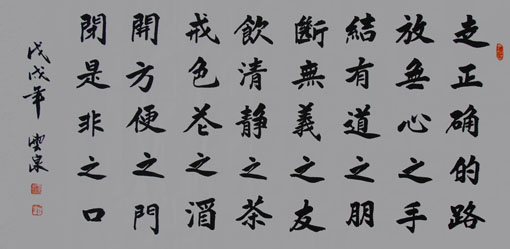 走正确的路
放無心之手
結有道之朋
斷無義之友
飲清靜之茶
戒色花之酒
開方便之門
閉是非之口
戊戌年 雲泉